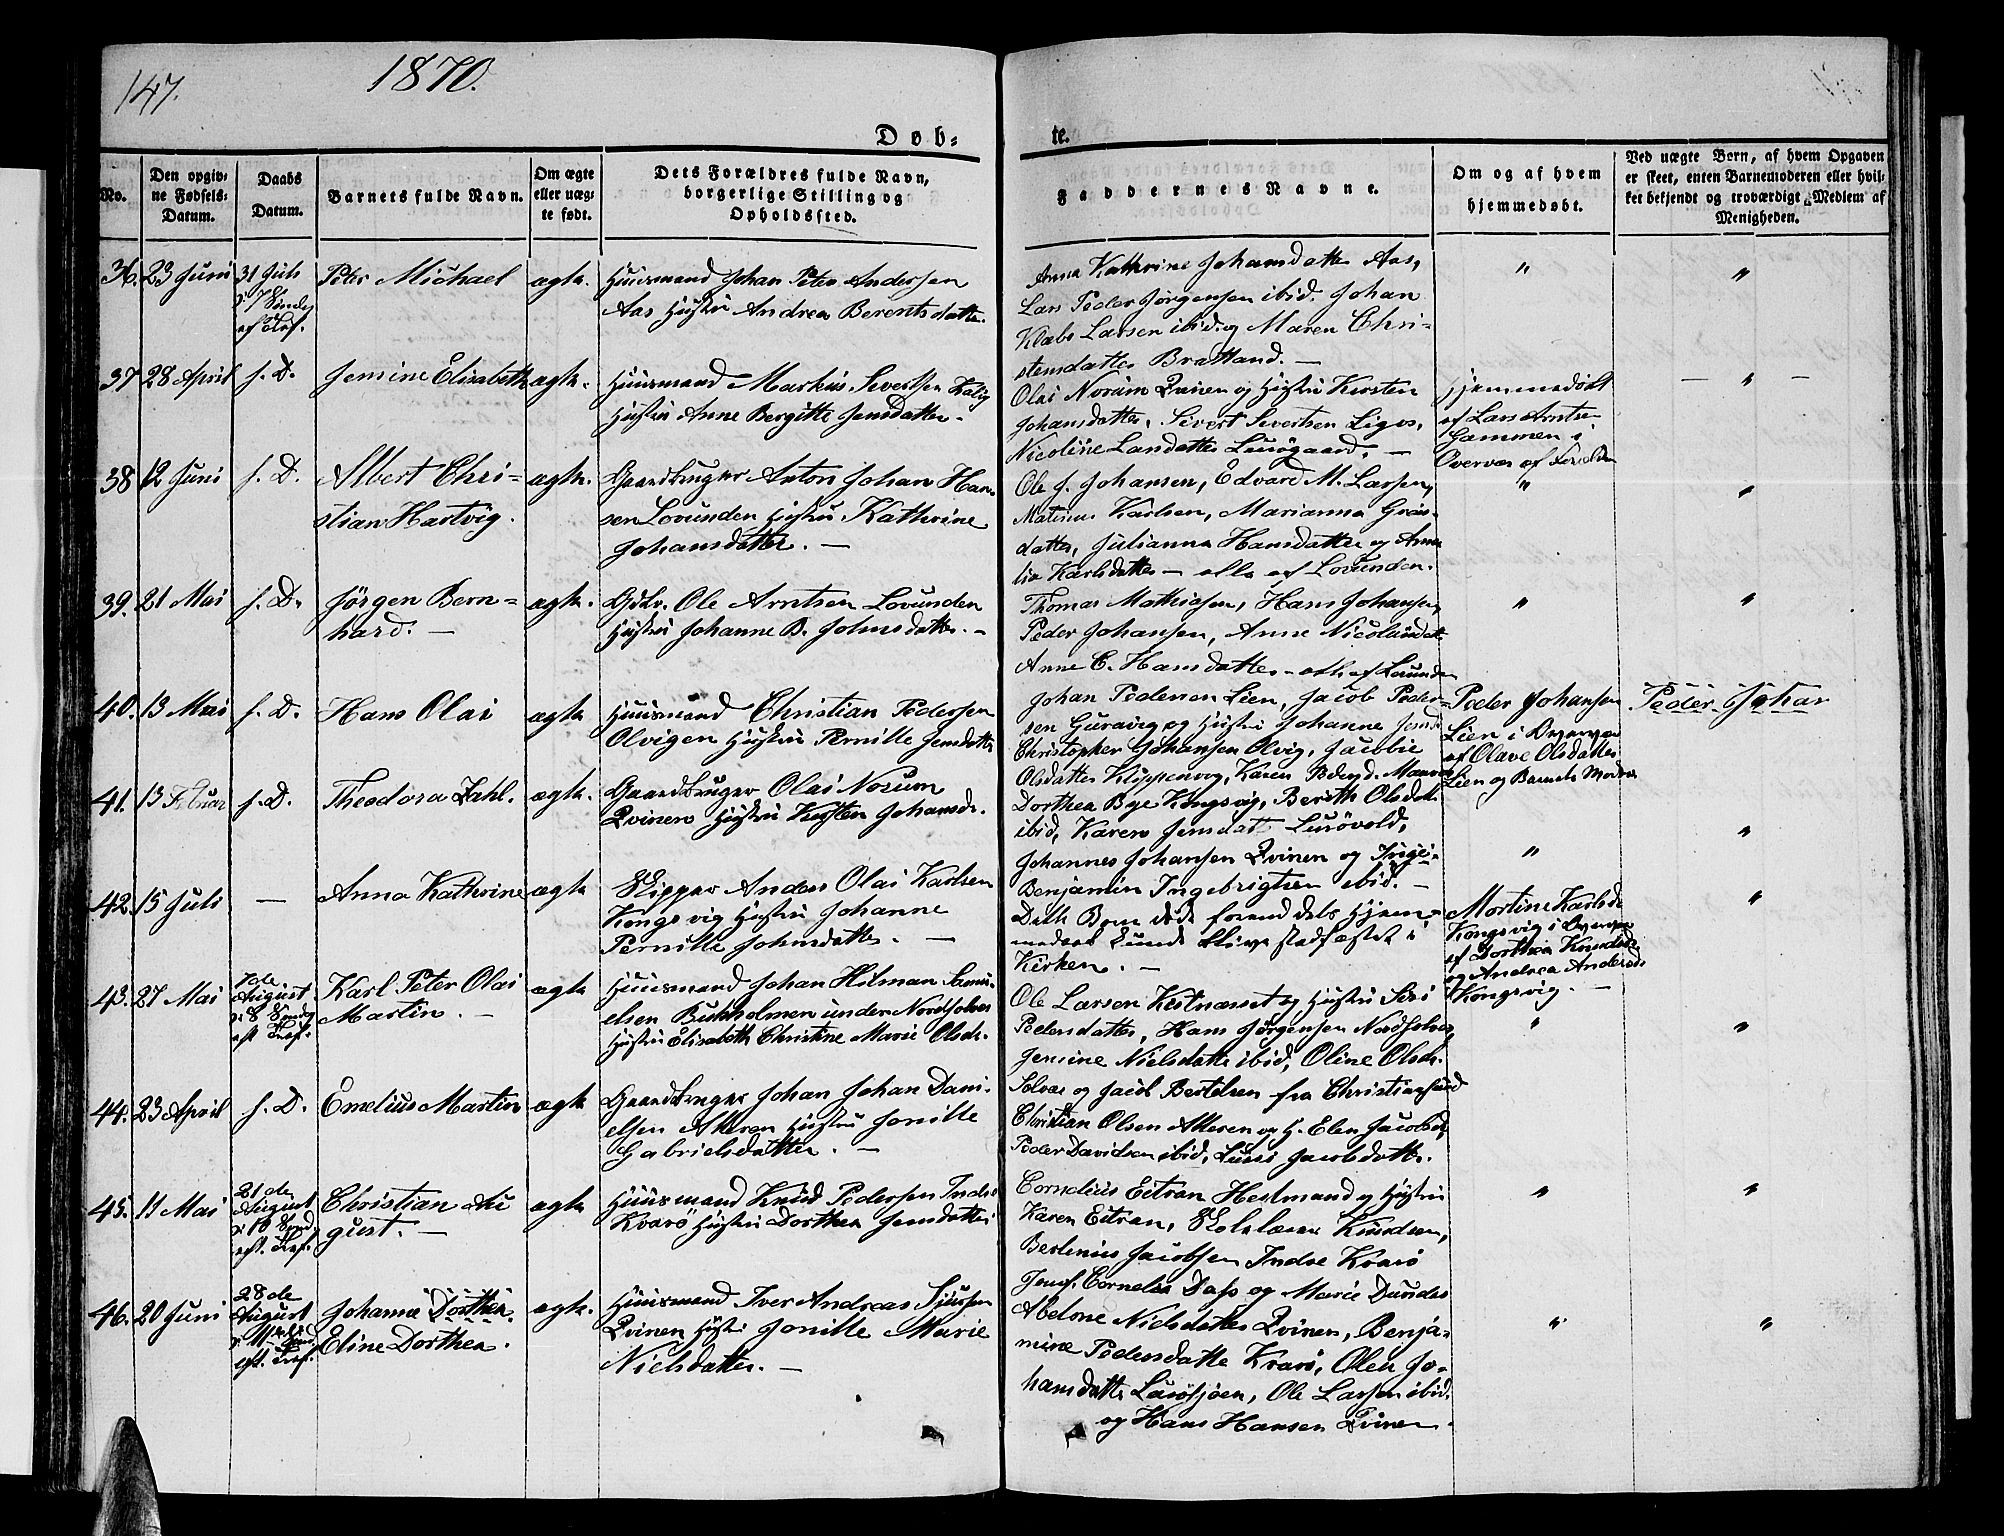 147.
1870.
Døb-
te.
No.
Den opgiv-
ne Fødsels-
Datum.
Daabs
Datum.
Barnets fulde Navn.
Om ægte
eller uæg-
te født.
Dets Forældres fulde Navn,
borgerlige Stilling og
Opholdssted.
Faddernes Navne.
Om og af hvem
hjemmedøbt.
Ved uægte Børn, af hvem Opgaven
er skeet, enten Barnemoderen eller hvil-
ket bekjendt og troværdigt Medlem af
Menigheden.
36. 23 Juni
31 Juli
i 7 Søndg
eft Tref.
Peter Michael
ægte.
Huusmand Johan Peter Andersen
Aas Hustru Andrea Berentsdatter.
Anna Kathrine Johansdatter Aas,
Lars Peder Jørgensen ibid. Johan
Klæbo Larsen ibid. og Maren Chri-
stensdatter Brattland. —
"
"
37 28 April
s. D.
Jemine Elisabeth
ægte.
Huusmand Markus Sivertsen
Hustru Anne Bergitte Jensdatter.
Olai Norum Qvinen og Hustru Kirsten
Johansdatter, Sivert Sivertsen Ligos,
Nicoline Larsdatter Lurøgaard. —
Hjemmedøbt
af Lars Arntsen
Gammen i
Overvær af Forældre
— " —
38 12 Juni
s. D.
Albert Chri-
stian Hartvig.
ægte.
Gaardbruger Anton Johan Han-
sen Lovunden Hustru Kathrine
Johansdatter. —
Ole J. Johansen, Edvard M. Larsen,
Matinus Karlsen, Marianna Græs-
datter, Julianna Hansdatter og Ama-
lia Karlsdatter — alle af Lovunden.
"
"
39. 21 Mai
s. D.
Jørgen Bern-
hard. —
ægte.
Gdbr. Ole Arntsen Lovunden
Hustru Johanne B. Johnsdatter. —
Thomas Mathiasen, Hans Johansen,
Peder Johansen, Anne Nicolaisdatt
Anne C. Hansdatter — alle af Lovunden
"
"
40. 13 Mai
s. D.
Hans Olai
ægte
Huusmand Christian Pedersen
Olvigen Hustru Pernille Jensdatter
Johan Pedersen Lien, Jacob Peder-
sen Guraavig og Hustru Johanne Jensd
Christopher Johansen Olvig, Jacobie
Olsdatter Klippenvog, Karen
Peder Johansen
Lien i Overvær
af Olave Olsdatter
Lien og Barnets Moder
Peder Johan
41. 13 Februar
s. D.
Theodora Zahl.
ægte.
Gaardbruger Olai Norum
Qvinen Hustru Kirsten Johansd.
Dorthea Bye Kongsvig, Berith Olsdatt
ibid, Karen Jensdatt Lurøvold,
Johannes Johansen Qvinen og Inge-
Benjamin Ingebrigtsen ibid. —
"
"
42. 15 Juli
—
Anna Kathrine
ægte
Skipper Anders Olai Karlsen
Kongsvig Hustru Johanne
Pernille Johnsdatter. —
Dette Barn døde forend dets Hjem-
medaab kunde blive stadfæstet i
Kirken. —
Martine Karlsd
Kongsvig i Overvær
af Dorthea Knudsd
og Andrea Andersd
Kongsvig. —
"
43. 27 Mai
7de
August
i 8 Søndg
eft Tref.
Karl Peter Olai
Martin. —
ægte
Huusmand Johan Hilman Samu-
elsen Bukholmen under Nordsolvær
Hustru Elisabeth Christine Marie Olsdr.
Ole Larsen Kestnæsset og Hustru Siri
Pedersdatter, Hans Jørgensen Nordsolvær,
Jensine Nielsdatter ibid, Oline Olsdr.
Solvær og Jacob Bertelsen fra Christiansund
"
"
44. 23 April
s. D.
Emelius Martin
ægte
Gaardbruger Johan Johan Dani-
elsen Alteren Hustru Jonille
Gabrielsdatter. —
Christian Olsen Alteren og H. Elen Jacobsd
Peder Davidsen ibid, Lussi Jacobsdatter.
45. 11 Mai
21de
August
i 10 Sønd
eft. Tref.
Christian Au
gust. —
ægte
Huusmand Knud Pedersen Indre
Kvarø Hustru Dorthea Jensdatter
Cornelius Eitran Hestmand og Hustru
Karen Eitran, Skolelærer Knudsen,
Bertinius Jacobsen Indre Kvarø
Jomf. Cornelia Dass og Marie Davids
"
"
46. 20 Juni
28de
August
i 11te Sønd
eft. Tref.
Johanna Dorthea
Eline Dorthea.
ægte.
Huusmand Iver Andreas Sjursen
Qvinen Hustru Jonille Marie
Nielsdatter. —
Abelone Nielsdatter Qvinen, Benja-
mine Pedersdatter Kvarø, Olen Jo-
hansdatter Lurøsjøen, Ole Larsen ibid.
og Hans Hansen Qvinen.
"
"